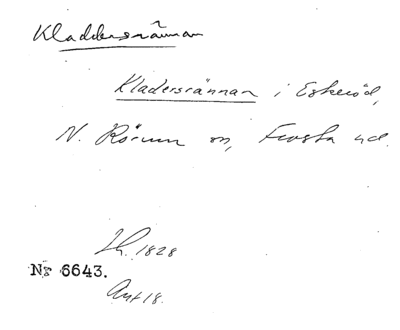 Kladdersrännan
Kladersrännan i Eskeröd,
N. Rörum sn, Frosta hd.
Lh. 1828
Nr 6643.
Ant 18.